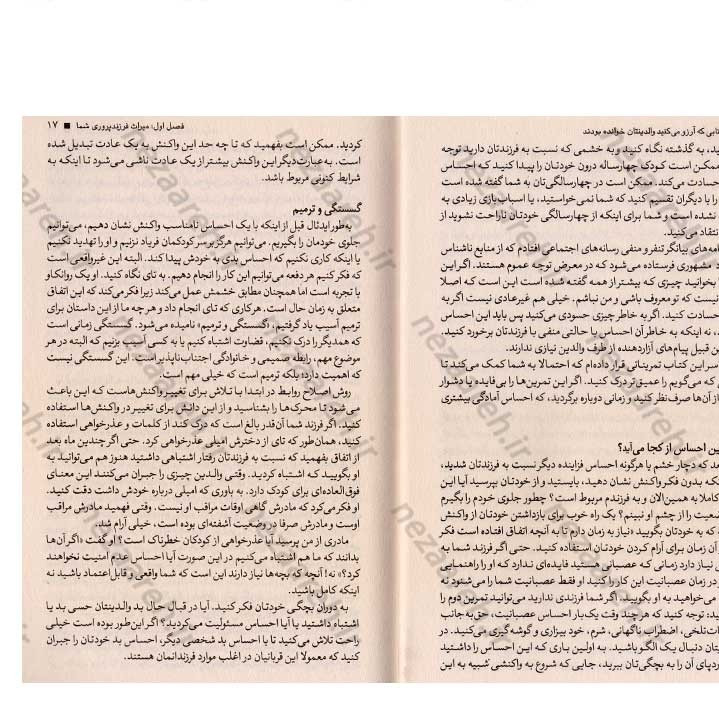 تابی که آرزو می‌کنید والدینتان خوانده بودند
ید، به گذشته نگاه کنید و به خشمی که نسبت به فرزندتان دارید توجه
ممکن است کودک چهارساله درون خودتان را پیدا کنید کـه احسـاس
حسادت می‌کند. ممکن است در چهارسالگی‌تان به شما گفته شده است
را با دیگران تقسیم کنید که شما نمی‌خواستید، یا اسباب‌بازی زیادی به
نشده است و شما برای اینکه از چهارسالگی خودتان ناراحت نشوید از
انتقاد می‌کنید.
امه‌های بیانگر تنفر و منفی رسانه‌های اجتماعی افتادم که از منابع ناشناس
د مشهوری فرستاده می‌شود که در معرض توجه عموم هستند. اگر این
بخوانید چیزی که بیشتر از همه گفته شده است این است کـه اصلا
نیست که تو معروف باشی و من نباشم. خیلی هم غیرعادی نیست اگر به
حسادت کنید. اگر به خاطر چیزی حسودی می‌کنید پس باید این احساس
، نه اینکه به خاطر آن احساس یا حالتی منفی با فرزندتان برخورد کنید.
ین قبیل پیام‌های آزاردهنده از طرف والدین نیازی ندارند.
سر این کتاب تمریناتی قرار داده‌ام که احتمالا به شما کمک می‌کند تا
ی که می‌گویم را عمیق‌تر درک کنید. اگر این تمرین‌ها را بی‌فایده یا دشوار
از آن‌ها صرف‌نظر کنید و زمانی دوباره برگردید، که احساس آمادگی بیشتری
ین احساس از کجا می‌آید؟
عد که دچار خشم یا هرگونه احساس فزاینده دیگر نسبت به فرزندتان شدید،
نکه بدون فکر واکنش نشان دهید، بایستید و از خودتان بپرسید آیا این
کاملا به همین‌الان و به فرزندم مربوط است؟ چطور جلوی خودم را بگیرم
ضعیت را از چشم او نبینم؟ یک راه خوب برای بازداشتن خودتان از واکنش
که به خودتان بگویید «نیاز به زمان دارم تا به آنچه اتفاق افتاده است فکر
آن زمان برای آرام کردن خودتان استفاده کنید. حتی اگر فرزند شـما بـه
ی نیاز دارد زمانی که عصبانی هستید فایده‌ای نـدارد کـه او را راهنمـایی
در زمان عصبانیت این کار را کنید او فقط عصبانیت شما را می‌شنود نه
می‌خواهید به او بگویید. اگر شما فرزندی ندارید می‌توانید تمرین دوم را
ید: توجه کنید که هر چند وقت یک‌بار احساس عصبانیت، حق‌به‌جانب
ات‌تلخی، اضطراب ناگهانی، شرم، خود بیزاری و گوشه‌گیری می‌کنید. در
یتان دنبال یک الگو باشید. به اولین باری کـه ایـن احسـاس را داشـتید
ردپای آن را به بچگی‌تان ببرید، جایی که شروع به واکنشی شبیه به این
فصل اول: میراث فرزندپروری شما ■ ۱۷
کردید. ممکن است بفهمید که تا چه حد این واکنش به یک عادت تبدیل شده
است. به عبارت دیگر این واکنش بیشتر از یک عادت ناشی می‌شود تا اینکـه به
شرایط کنونی مربوط باشد.
گسستگی و ترمیم
به‌طور ایدئال قبل از اینکه با یک احساس نامناسب واکنش نشان دهیم، می‌توانیم
جلوی خودمان را بگیریم. می‌توانیم هرگز بر سر کودکمان فریاد نزنیم و او را تهدید نکنیم
یا اینکه کاری نکنیم که احساس بدی به خودش پیدا کند. البته این غیرواقعی است
که فکر کنیم هر دفعه می‌توانیم این کار را انجام دهیم. به تای نگاه کنید. او یک روانکاو
با تجربه است اما همچنان مطابق خشمش عمل می‌کند زیرا فکر می‌کند که این اتفاق
متعلق به زمان حال است. هر کاری که تای انجام داد و هرچه ما از این داستان برای
ترمیم آسیب یاد گرفتیم، «گسستگی و ترمیم» نامیده می‌شود. گسستگی زمانی است
که همدیگر را درک نکنیم، قضاوت اشتباه کنیم یا به کسی آسیب بزنیم که البته در هر
موضوع مهم، رابطه صمیمی و خانوادگی اجتناب‌ناپذیر است. این گسستگی نیست
که اهمیت دارد؛ بلکه ترمیم است که خیلی مهم است.
روش اصـلاح روابـط در ابتـدا بـا تـلاش بـرای تغییـر واکنش‌هاست کـه ایـن باعـث
می‌شود تا محرک‌ها را بشناسید و از این دانش برای تغییـر در واکنش‌ها استفاده
کنید. اگر فرزند شما آن‌قدر بالغ است که درک کند از کلمات و عذرخواهی استفاده
کنید، همان‌طور که تای از دخترش امیلی عذرخواهی کرد. حتی اگر چندین ماه بعد
از اتفاق بفهمید که نسبت به فرزندتان رفتار اشتباهی داشتید هنوز هم می‌توانید به
او بگوییـد کـه اشتبـاه کردیـد. وقتـی والـدین چیـزی را جبـران می‌کننـد ایـن معنـای
فوق‌العاده‌ای برای کودک دارد. به باوری که امیلی درباره خودش داشت دقت کنید.
او فکر می‌کرد که مادرش گاهی اوقات مراقب او نیست. وقتی فهمید مادرش مراقب
اوست و مادرش صرفا در وضعیت آشفته‌ای بوده است، خیلی آرام شد.
مادری از من پرسید آیا عذرخواهی از کودکان خطرناک است؟ او گفت: «اگر آن‌ها
بدانند که ما هم اشتباه می‌کنیم در این صورت آیا احساس عدم امنیت نخواهند
کرد؟» نه! آنچه که بچه‌ها نیاز دارند این است که شما واقعی و قابل‌اعتماد باشید نه
اینکه کامل باشید.
به دوران بچگی خودتان فکر کنید. آیا در قبال حال بد والدینتان حسی بد یا
اشتباه داشتید یا آیا احساس مسئولیت می‌کردید؟ اگر این‌طور بوده است خیلی
راحت تلاش می‌کنید تا با احساس بد شخصی دیگر، احساس بد خودتان را جبران
کنید که معمولا این قربانیان در اغلب موارد فرزندانمان هستند.
nezaareh.ir
nezaareh.ir
nezaareh.ir
nezaareh.ir